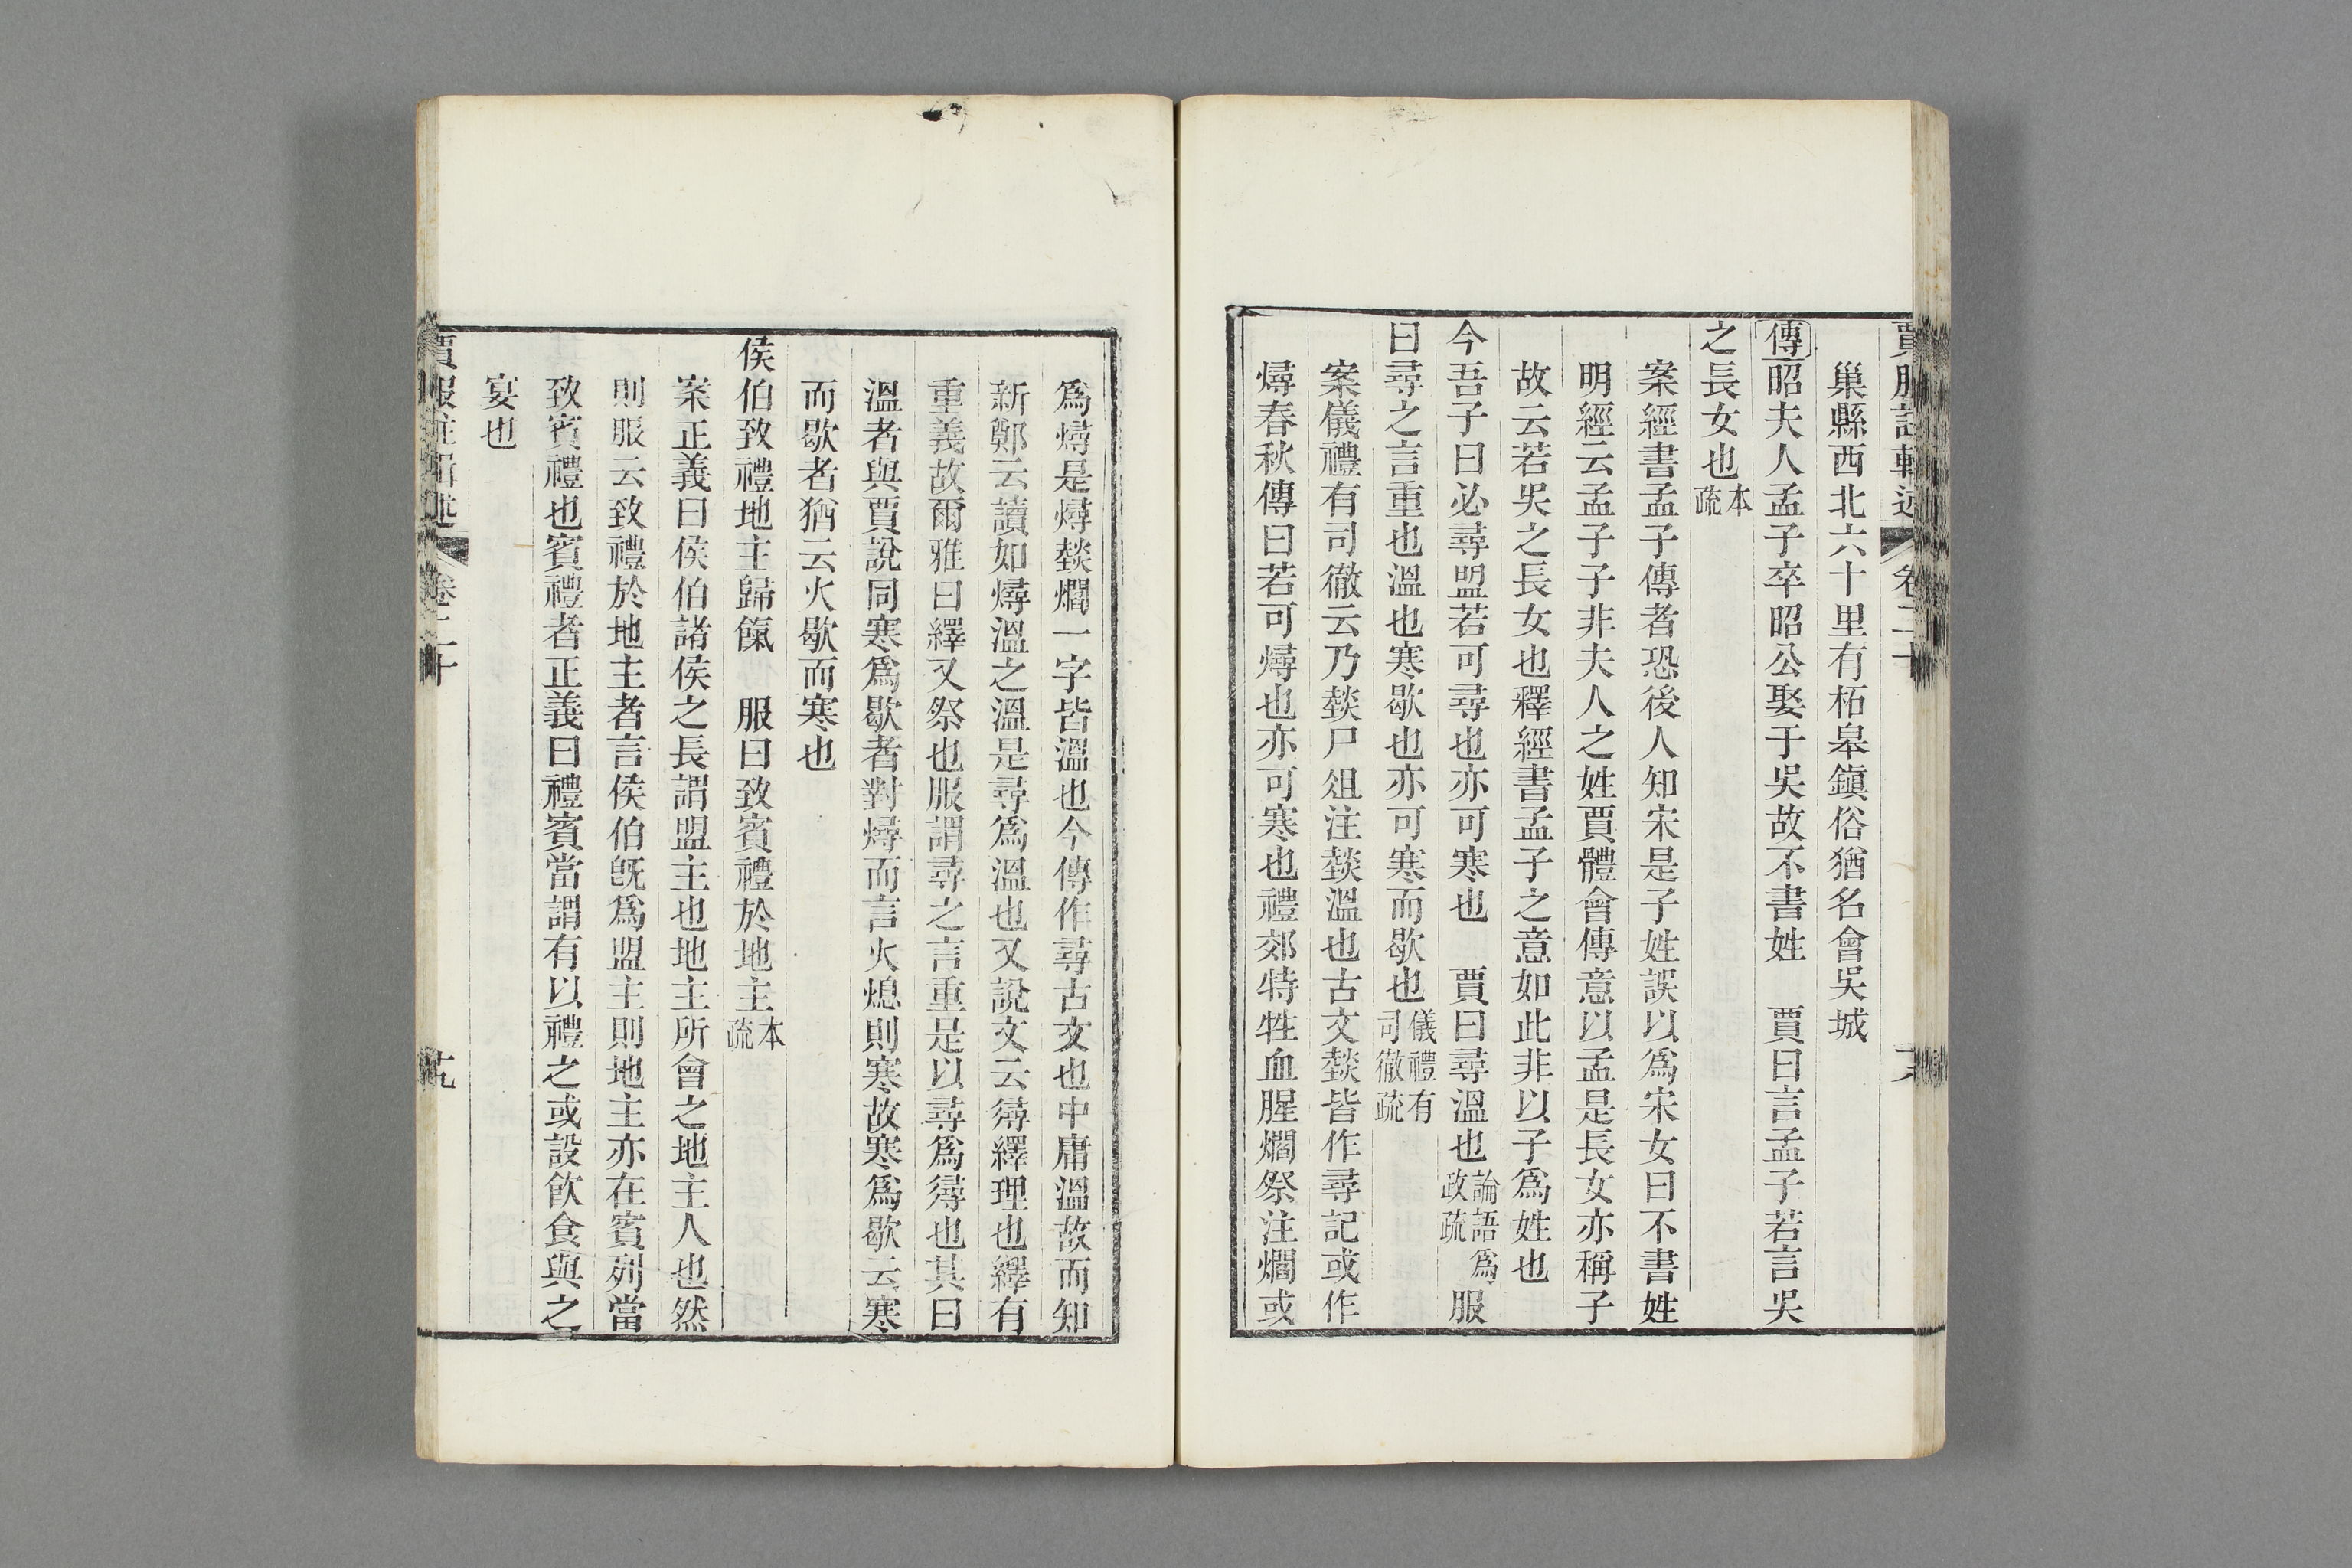 巢縣西北六十里有柘皋鎮俗猶名會吳城
傳昭夫人孟子卒昭公娶于吳故不書姓　賈曰言孟子若言吳
之長女也本疏
案經書孟子傳者恐後人知宋是子姓誤以爲宋女曰不書姓
明經云孟子子非夫人之姓賈體會傳意以孟是長女亦稱子
故云若吳之長女也釋經書孟子之意如此非以子爲姓也
今吾子曰必尋盟若可尋也亦可寒也　賈曰尋溫也論語爲政疏　服
曰尋之言重也溫也寒歇也亦可寒而歇也儀禮有司徹疏
案儀禮有司徹云乃燅尸俎注燅溫也古文燅皆作尋記或作
燖春秋傳曰若可燖也亦可寒也禮郊特牲血腥爓祭注爓或
爲燖是燖燅爓一字皆溫也今傳作尋古文也中庸溫故而知
新鄭云讀如燖溫之溫是尋爲溫也又說文云㝷繹理也繹有
重義故爾雅曰繹又祭也服謂尋之言重是以尋爲㝷也其曰
溫者與賈說同寒爲歇者對燖而言火熄則寒故寒爲歇云寒
而歇者猶云火歇而寒也
侯伯致禮地主歸餼　服曰致賓禮於地主本疏
案正義曰侯伯諸侯之長謂盟主也地主所會之地主人也然
則服云致禮於地主者言侯伯旣爲盟主則地主亦在賓列當
致賓禮也賓禮者正義曰禮賓當謂有以禮之或設飮食與之
宴也
賈服註輯述　卷二十　十九